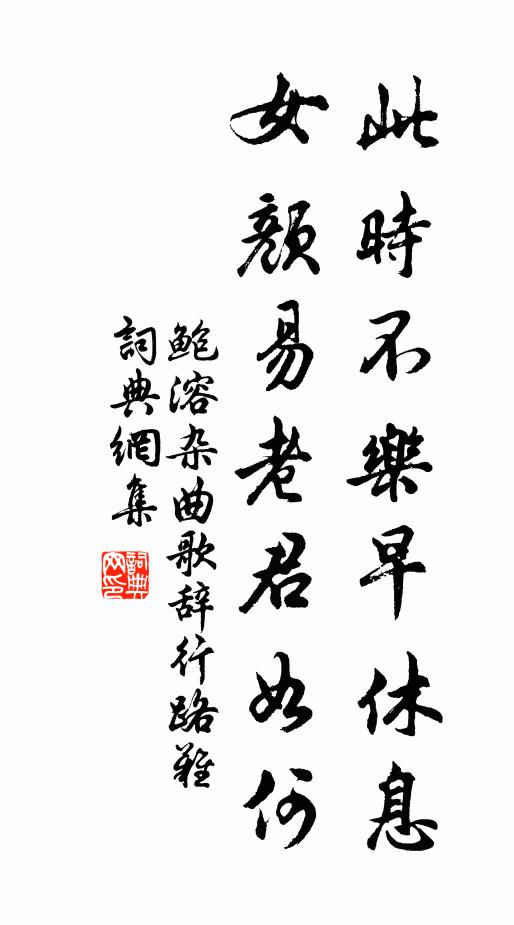 此時不樂早休息
女顏易老君如何
鲍溶杂曲歌辞行路難
詞典網集
詞典网印